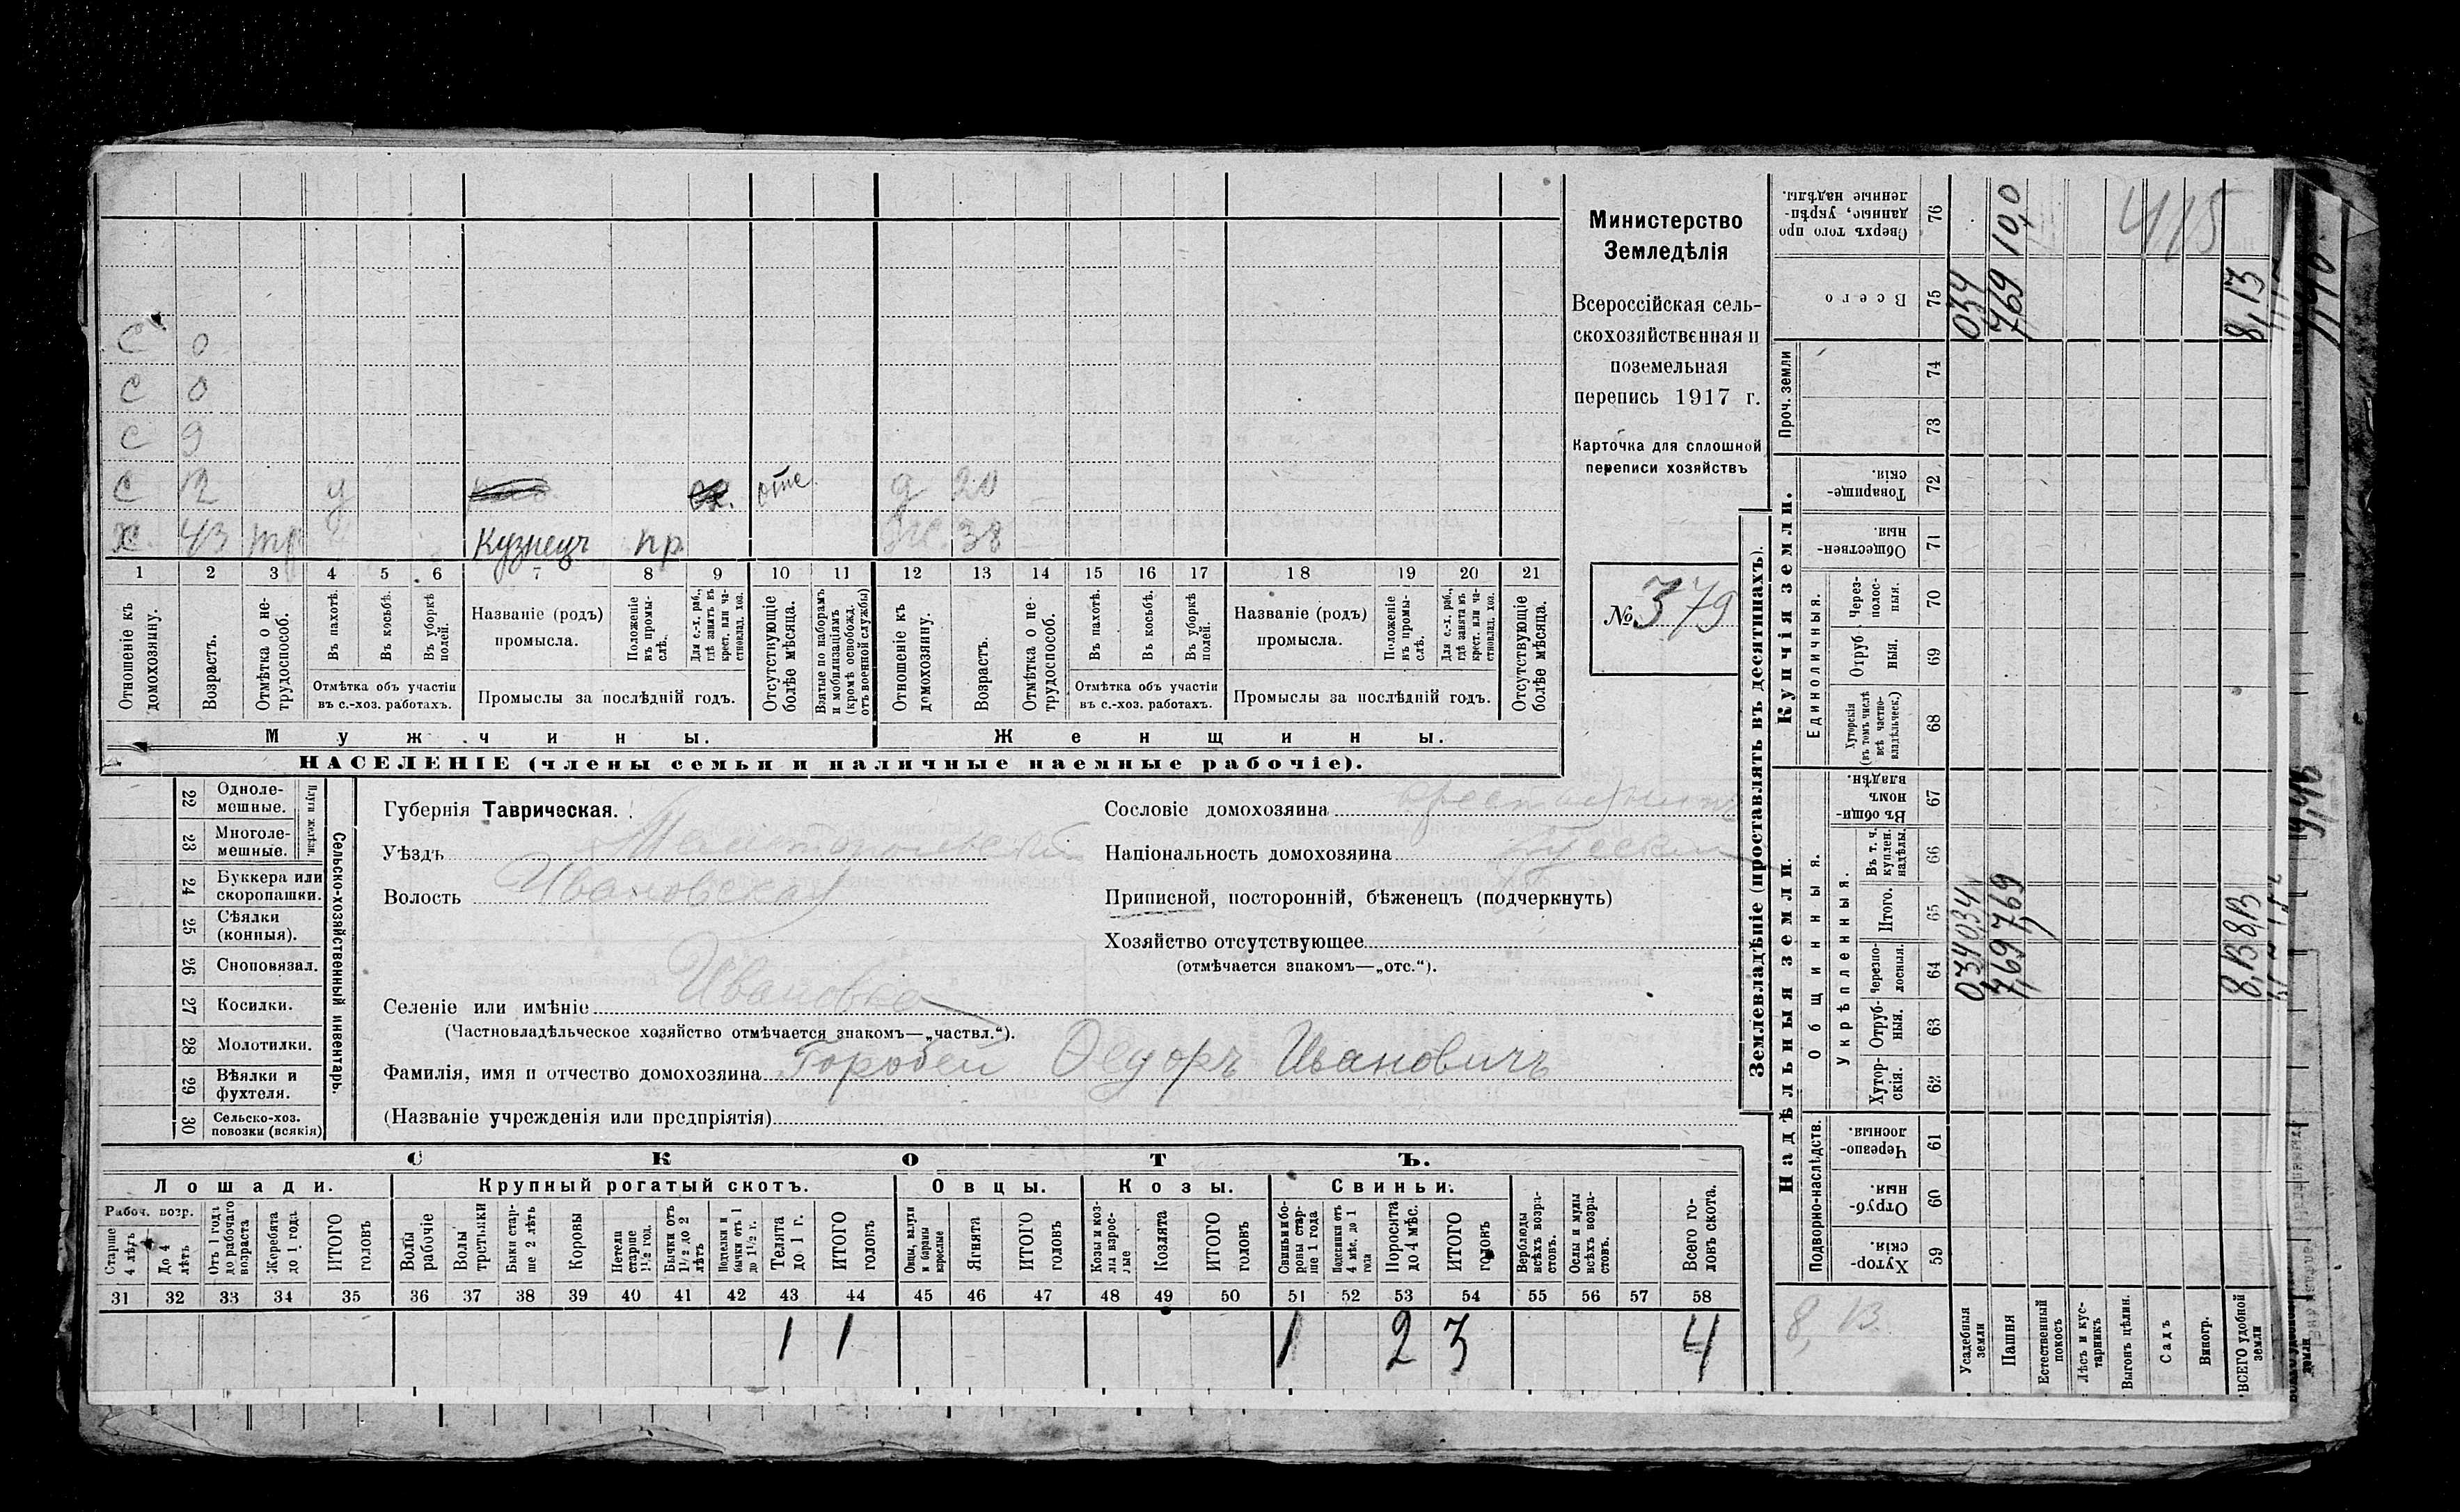 С 0
С 0
С 9
С 12 у отс. д 20
Х 43 тр Кузнецъ пр. ж. 38
1 2 3 4 5 6 7 8 9 10 11 12 13 14 15 16 17 18 19 20 21
Отношеніе къ домохозяину.
Возрастъ.
Отмѣтка о не-трудоспособ.
Въ пахотѣ.
Въ косьбѣ.
Въ уборкѣ полей.
Отмѣтка объ участіи
въ с.-хоз. работахъ.
Названіе (родъ)
промысла.
Положеніе въ промы-слѣ.
Для с.-х. раб., гдѣ занятъ въ крест. или ча-стновлад. хоз.
Промыслы за послѣдній годъ.
Отсутствующіе болѣе мѣсяца.
Взятые по наборамъ и мобилизаціямъ (кромѣ освобожд. отъ военной службы)
Отношеніе къ домохозяину.
Возрастъ.
Отмѣтка о не-трудоспособ.
Въ пахотѣ.
Въ косьбѣ.
Въ уборкѣ полей.
Отмѣтка объ участіи
въ с.-хоз. работахъ.
Названіе (родъ)
промысла.
Положеніе въ промы-слѣ.
Для с.-х. раб., гдѣ занята въ крест. или ча-стновлад. хоз.
Промыслы за послѣдній годъ.
Отсутствующіе болѣе мѣсяца.
Мужчины. Женщины.
НАСЕЛЕНІЕ (члены семьи и наличные наемные рабочіе).
Министерство
Земледѣлія
Всероссійская сель-
скохозяйственная и
поземельная
перепись 1917 г.
Карточка для сплошной
переписи хозяйствъ
№ 379
22 Одноле-мешные.
23 Многоле-мешные.
Плуги желѣзн.
24 Буккера или скоропашки.
25 Сѣялки (конныя).
26 Сноповязал.
27 Косилки.
28 Молотилки.
29 Вѣялки и фухтеля.
30 Сельско-хоз. повозки (всякія)
Сельско-хозяйственный инвентарь.
Губернія Таврическая.
Уѣздъ Мелитопольскій
Волость Ивановская
Селеніе или имѣніе Ивановка
(Частновладѣльческое хозяйство отмѣчается знакомъ—„частвл.“).
Фамилія, имя и отчество домохозяина Горобей Ѳедоръ Ивановичъ
(Названіе учрежденія или предпріятія)
Сословіе домохозяина крестьянинъ
Національность домохозяина русскій
Приписной, посторонній, бѣженецъ (подчеркнуть)
Хозяйство отсутствующее
(отмѣчается знакомъ—„отс.“).
СКОТЪ.
Лошади. Крупный рогатый скотъ. Овцы. Козы. Свиньи.
Рабоч. возр.
Старше 4 лѣтъ
До 4 лѣтъ
Отъ 1 года до рабочаго возраста
Жеребята до 1 года
ИТОГО головъ
Волы рабочіе
Волы трстьяки
Быки стар-ше 2 лѣтъ
Коровы
Нетели старше 1½ год.
Бычки отъ 1½ до 2 лѣтъ
Подтелки и бычки отъ 1 до 1½ г.
Телята до 1 г.
ИТОГО головъ
Овцы, валухи и бараны взрослые
Ягнята
ИТОГО головъ
Козы и коз-лы взрос-лые
Козлята
ИТОГО головъ
Свиньи и бо-ровы стар-ше 1 года
Подсвинки отъ 4 мѣс. до 1 года
Поросята до 4 мѣс.
ИТОГО головъ
Верблюды всѣхъ возра-стовъ.
Ослы и мулы всѣхъ возра-стовъ.
Всего го-ловъ скота.
31 32 33 34 35 36 37 38 39 40 41 42 43 44 45 46 47 48 49 50 51 52 53 54 55 56 57 58
1 1 1 2 3 4
Землевладѣніе (проставлять въ десятинахъ).
Надѣльныя земли. Купчія земли. Проч. земли
Подворно-наслѣдств.
Общинныя.
Укрѣпленныя.
Единоличныя.
Хутор-скія. 59
Отруб-ныя 60
Черезпо-лосныя. 61
Хутор-скія. 62
Отруб-ныя. 63
Черезпо-лосныя. 64
Итого. 65
Въ т. ч. куплен. надѣлы. 66
Въ общин-номъ владѣн. 67
Хуторскія (въ томъ числѣ всѣ частно-владѣльческ.) 68
Отруб ныя. 69
Через-полос-ныя. 70
Обществен-ныя. 71
Товарище-скія. 72
73
74
Всего 75
Сверхъ того про данные, укрѣп-ленные надѣлы. 76
Усадебныя земли 0,34 0,34 034
Пашня 7,69 7,69 7,69 10,0
Естественный покосъ
Лѣсъ и кус-тарникъ
Выгонъ цѣлин.
Садъ
Виногр.
ВСЕГО удобной земли 8,13 8,13 8,13
8,13
415